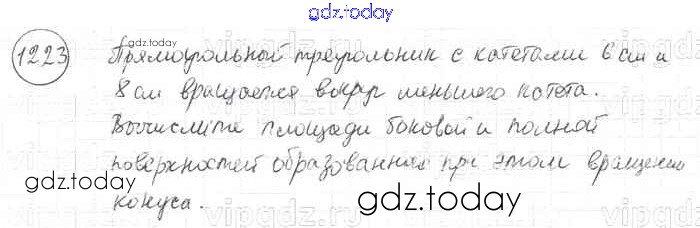 gdz.today
1223 Прямоугольный треугольник с катетами 6 см и
8 см вращается вокруг меньшего катета.
Вычислите площади боковой и полной
поверхностей образованная при этом вращении
конуса.
gdz.today
gdz.today
gdz.today